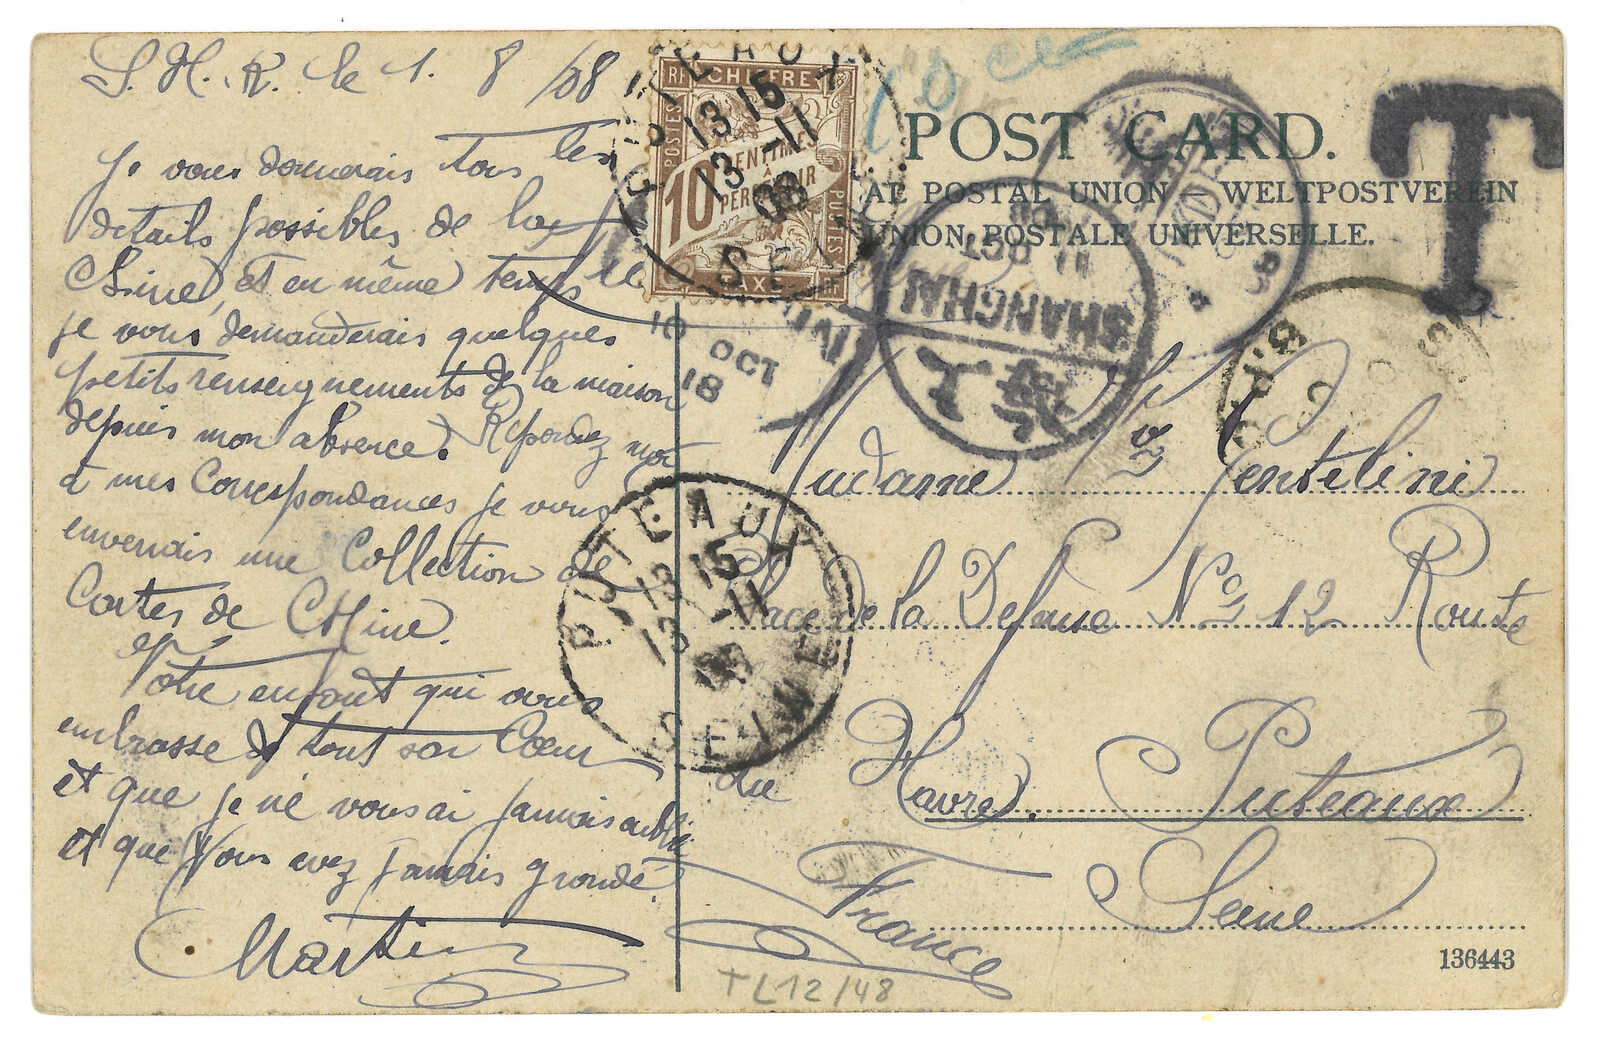 S.H.K. le 1. 8 /08
Je vous donnerais tous les
détails possibles de la
Chine, et en même temps
je vous demanderais quelques
petits renseignements de la maison
depuis mon absence. Repondez moi
à mes Correspondances je vous
enverrais une Collection de
Cartes de Chine.
Votre enfant qui vous
embrasse de tout son Cœur
et que je ne vous ai jamais oublié
et que Vous avez jamais grondé.
Martin
10 ce
POSTES
CHIFFRE
10 CENTIMES
À
PERCEVOIR
TAXE
RF
PUTEAUX
13 15
13 -11
08
SEINE
10
OCT
18
POST CARD.
AL POSTAL UNION – WELTPOSTVEREIN
UNION POSTALE UNIVERSELLE.
T
SHANGHAI
11 OCT
08
上海
PUTEAUX
13 15
13 -11
SEINE
Madame Gentelini
Place de la Defense No 12 Route
du Havre. Puteaux
Seine
France
136443
TL12/48